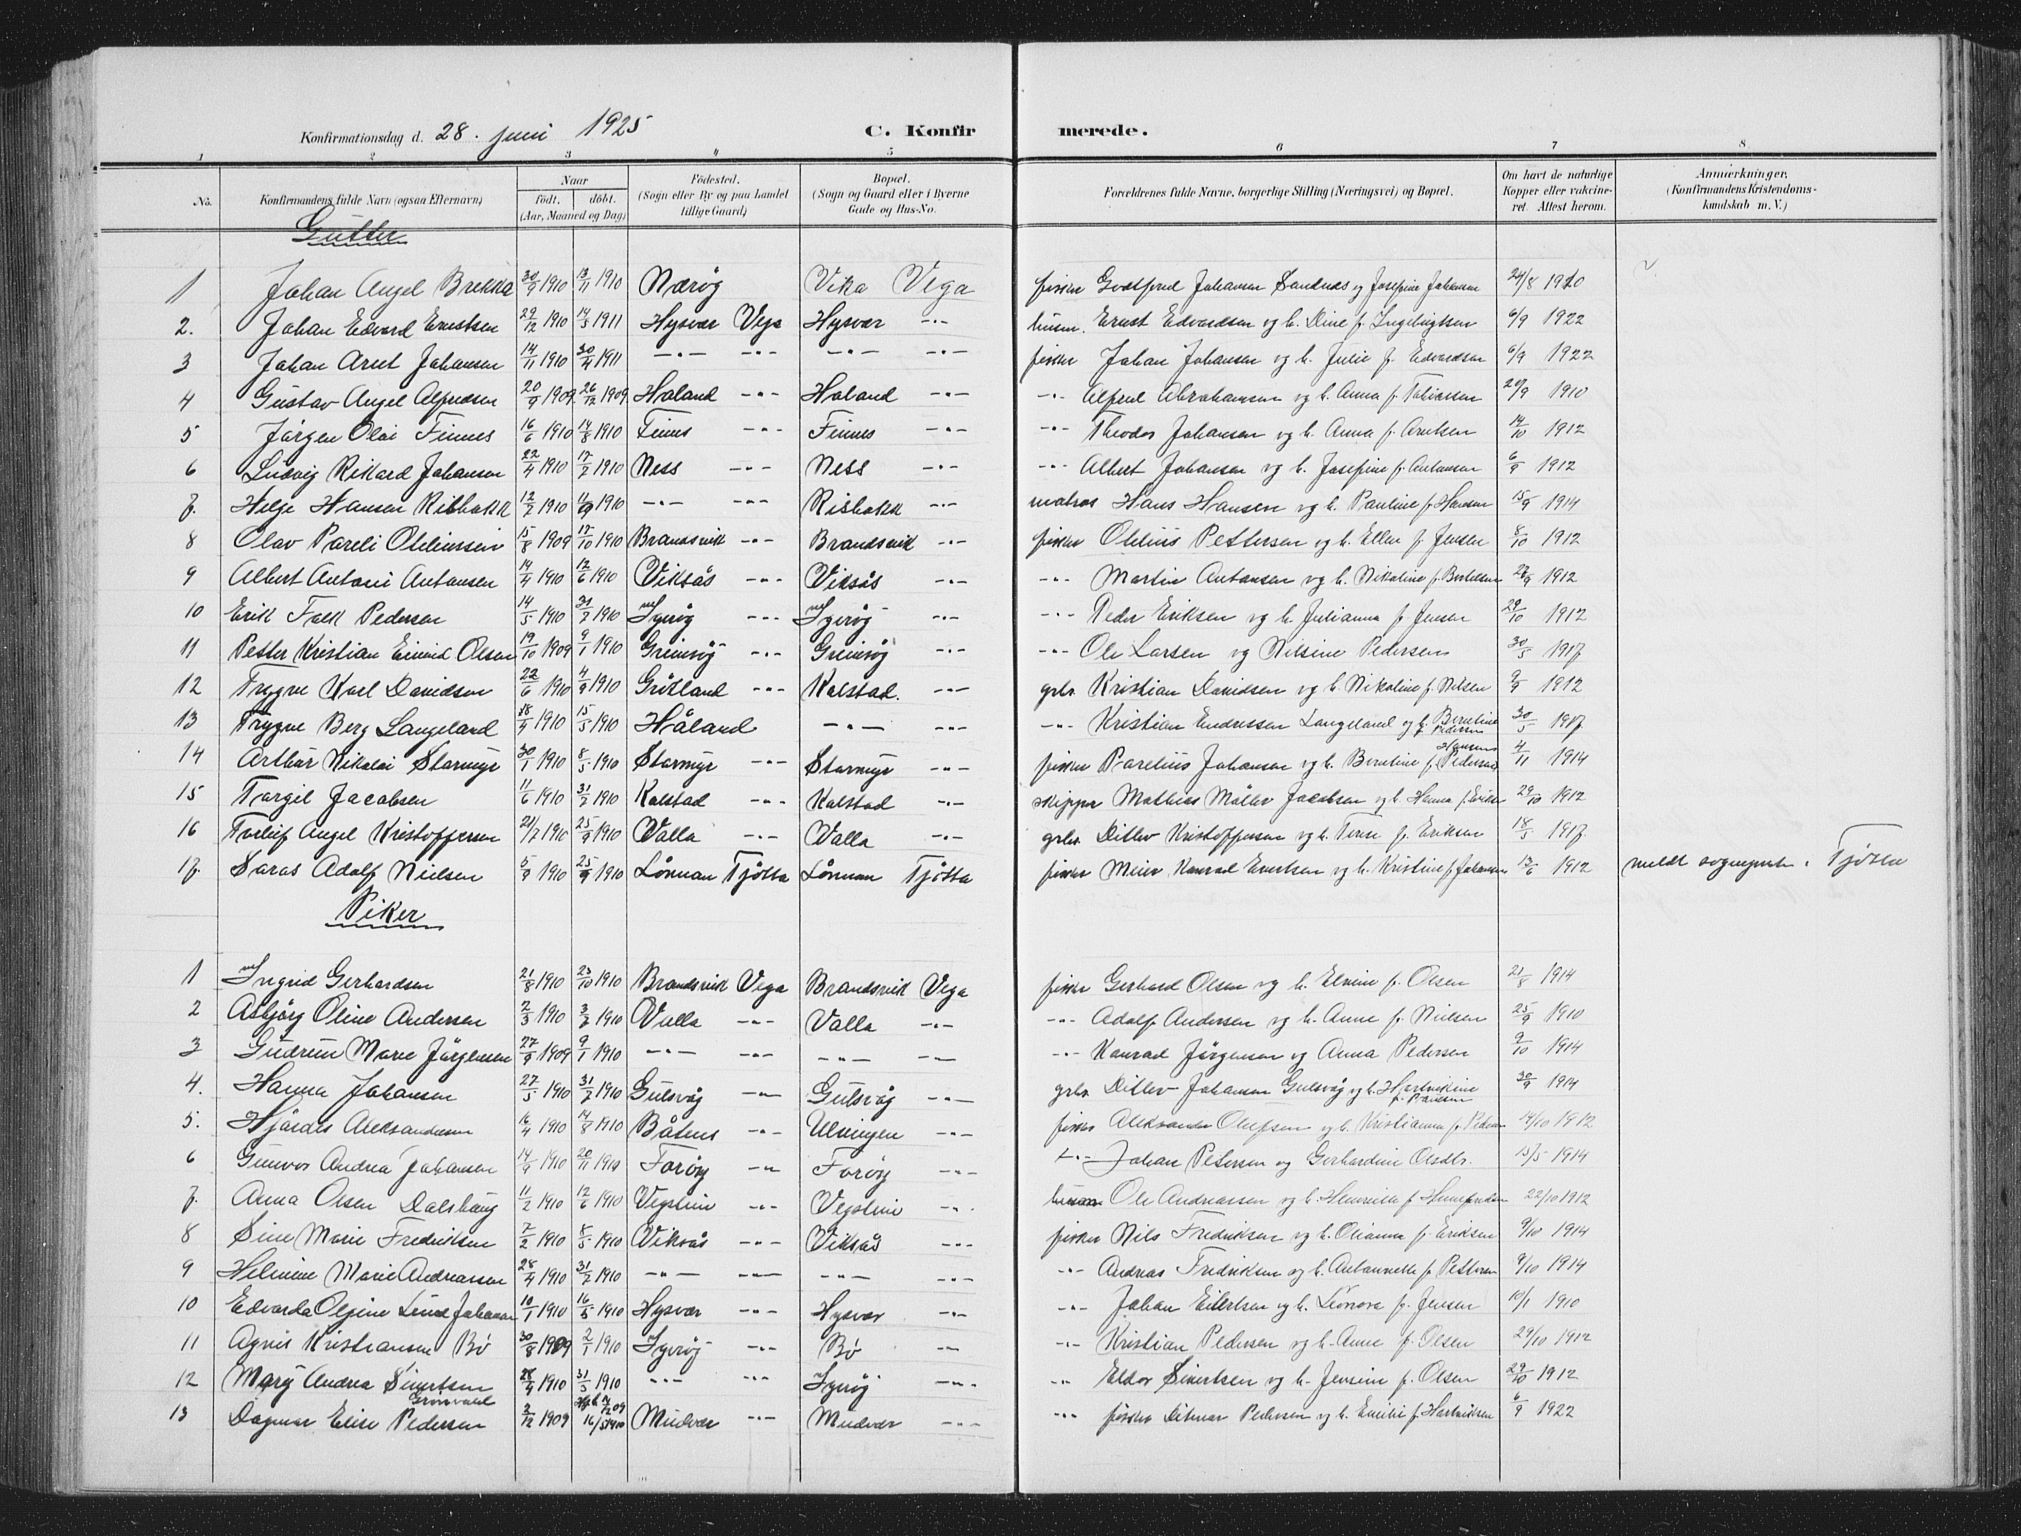 Konfirmationsdag d. 28. juni 1925 C. Konfirmerede.
1 2 3 4 5 6 7 8
No. Konfirmandens fulde Navn (ogsaa Efternavn) Naar födt. döbt. (Aar, Maaned og Dag) Födested. (Sogn eller By og paa Landet tillige Gaard) Bopæl. (Sogn og Gaard eller i Byerne Gade og Hus-No. Forældrenes fulde Navne, borgerlige Stilling (Næringsvei) og Bopæl. Om havt de naturlige Kopper eller vakcineret. Attest herom. Anmærkninger. (Konfirmandens Kristendomskundskab m. V.)
Gutter
1 Johan Angel Brekka 30/9 1910 13/11 1910 Nærøy Vika Vega fisker Godtfred Johansen Sandnes og Josefine Johansen 24/8 1910
2. Johan Edvard Ernstsen 29/12 1910 14/5 1911 Hysvær Vega Hysvær -"- husm. Ernst Edvardsen og h. Dine f. Ingebrigtsen 6/9 1922
3 Johan Arnt Johansen 14/11 1910 30/4 1911 -"- -"- -"- -"- fisker Johan Johansen og h. Julie f. Edvardsen 6/9 1922
4 Gustav Angel Alfredsen 20/9 1909 26/12 1909 Haland -"- Haland -"- -"- Alfred Abrahamsen og h. Anna f. Tobiassen 20/9 1910
5 Jørgen Olai Finnes 16/6 1910 14/8 1910 Finnes -"- Finnes -"- -"- Theodor Johansen og h. Anna f. Arntsen 14/10 1912
6 Ludvig Rikard Johansen 22/4 1910 17/2 1910 Ness -"- Ness -"- -"- Albert Johansen og h. Josefine f. Antonsen 6/9 1912
7. Helge Hansen Risbakk 12/2 1910 11/9 1910 -"- -"- Risbakk -"- matros Hans Hansen og h. Pauline f. Hansen 15/9 1914
8 Olav Pareli Oteliussen 15/8 1909 17/10 1910 Brandsvik -"- Brandsvik -"- fisker Otelius Pettersen og h. Ellen f. Jensen 8/10 1912
9 Albert Antoni Antonsen 14/4 1910 12/6 1910 Viksås -"- Viksås -"- -"- Martin Antonsen og h. Nikoline f. Bertelsen 27/9 1912
10 Erik Falk Pedersen 14/5 1910 31/7 1910 Igerøy -"- Igerøy -"- -"- Peder Eriksen og h. Julianna f. Jensen 29/10 1912
11 Petter Kristian Eivind Olsen 19/10 1909 9/1 1910 Grimsøy -"- Grimsøy -"- -"- Ole Larsen og Nilsine Pedersen 30/5 1917
12 Trygve Karl Davidsen 22/6 1910 4/9 1910 Grötland -"- Kalstad. -"- grbr. Kristian Davidsen og h. Nikoline f. Nilsen 9/9 1912
13 Trygve Berg Langeland 18/4 1910 15/5 1910 Håland -"- -"- -"- Kristian Endresen Langeland og h. Berntine f. Pedersen 30/5 1917
14 Arthur Nikolai Stormyr 30/1 1910 8/5 1910 Stormyr -"- Stormyr -"- fisker Parelius Johansen og h. Berntine f. Pedersen Hansen 4/11 1914
15 Torgil Jacobsen 11/6 1910 31/7 1910 Kalstad -"- Kalstad -"- skipper Mathias Møller Jacobsen og h. Hanna f. Eriksen 29/10 1912
16 Torleif Angel Kristoffersen 21/7 1910 25/9 1910 Valla -"- Valla -"- grbr. Ditlev Kristoffersen og h. Terese f. Eriksen 18/5 1917
17. Saras Adolf Nielsen 5/9 1910 25/9 1910 Lönnan Tjötta Lönnan Tjötta fisker Meier Konrad Evertsen og h. Kristine f. Johansen 13/6 1912 meldt sogneprest i Tjötta
Piker
1 Ingrid Gerhardsen 21/8 1910 23/10 1910 Brandsvik Vega Brandsvik Vega fisker Gerhard Olsen og h. Elvine f. Olsen 21/8 1914
2 Asbjørg Oline Andersen 2/3 1910 3/7 1910 Valla -"- Valla -"- -"- Adolf Andersen og h. Anne f. Nielsen 25/9 1910
3 Gudrun Marie Jørgensen 27/9 1909 9/1 1910 -"- -"- -"- -"- -"- Konrad Jørgensen og Anna Pedersen 9/10 1914
4. Hanna Johansen 27/5 1910 31/7 1910 Gulsvåg -"- Gulsvåg -"- grbr. Ditlev Johansen Gulsvåg og h. Hartvikine f. Paulsen 30/9 1914
5. Hjördis Aleksandersen 16/4 1910 14/8 1910 Båtnes -"- Ulsningen -"- fisker Aleksander Olufsen og h. Kristianna f. Pedersen 14/10 1912
6 Gunvor Andrea Johansen 14/9 1910 20/11 1910 Forøy -"- Forøy -"- -"- Johan Petersen og Gerhardine Olsdtr. 15/5 1914
7. Anna Olsen Dalshaug 11/2 1910 12/6 1910 Vegstein -"- Vegstein -"- husm Ole Andreassen og h. Henriette f. 22/10 1912
8 Sine Marie Fredriksen 7/2 1910 8/5 1910 Viksås -"- Viksås -"- fisker Nils Fredriksen og h. Olianna f. Eriksen 9/10 1914
9 Helmine Marie Andreassen 28/4 1910 31/7 1910 -"- -"- -"- -"- -"- Andreas Fredriksen og h. Antonette f. Pettersen 9/10 1914
10 Edvarda Olgine Lund Johansen 10/1 1910 16/5 1910 Hysvær -"- Hysvær -"- -"- Johan Eilertsen og h. Leonora f. Jensen 10/1 1910
11 Agnes Kristiansen Bø 30/8 1909 2/1 1910 Igerøy -"- Bø -"- -"- Kristian Pedersen og h. Anne f. Olsen 29/10 1912
12 Mary Andrea Sivertsen 28/4 1910 31/5 1910 -"- -"- Igerøy -"- -"- Eldor Sivertsen og h. Jensine f. Olsen 29/10 1912
13 Dagmar Elise Pedersen 3/12 1909 16/5 1910 Mudvær -"- Mudvær -"- -"- fisker Ditmar Pedersen og h. Emilie f. Hartviksen 6/9 1922